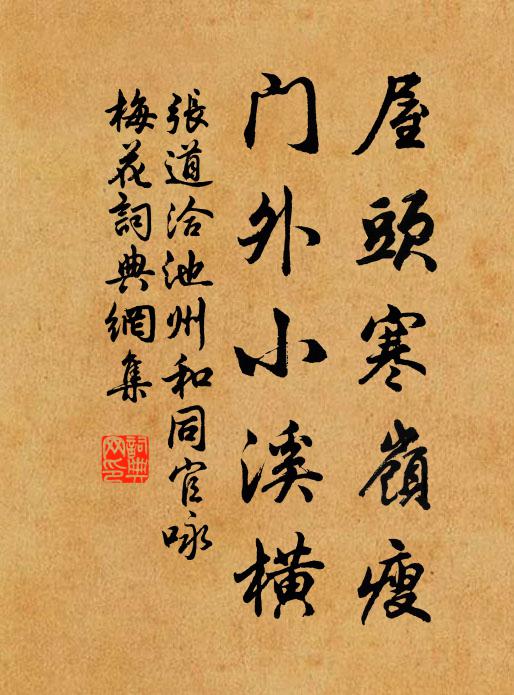 屋頭寒嶺瘦
门外小溪橫
張道洽池州和同官咏
梅花詞典網集
詞典网印